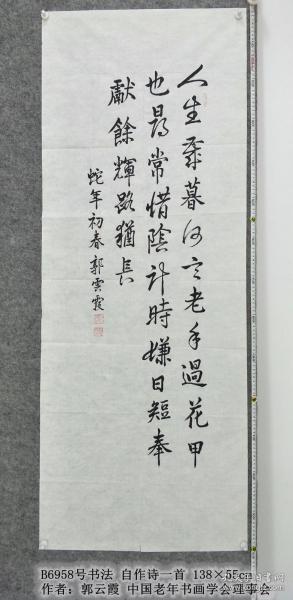 人生垂暮何言老年過花甲
也尋常惜陰計時嫌日短奉
獻餘輝路猶長
蛇年初春 郭雲霞
B6958号书法 自作诗一首 138×55cm
作者：郭云霞 中国老年书画学会理事会